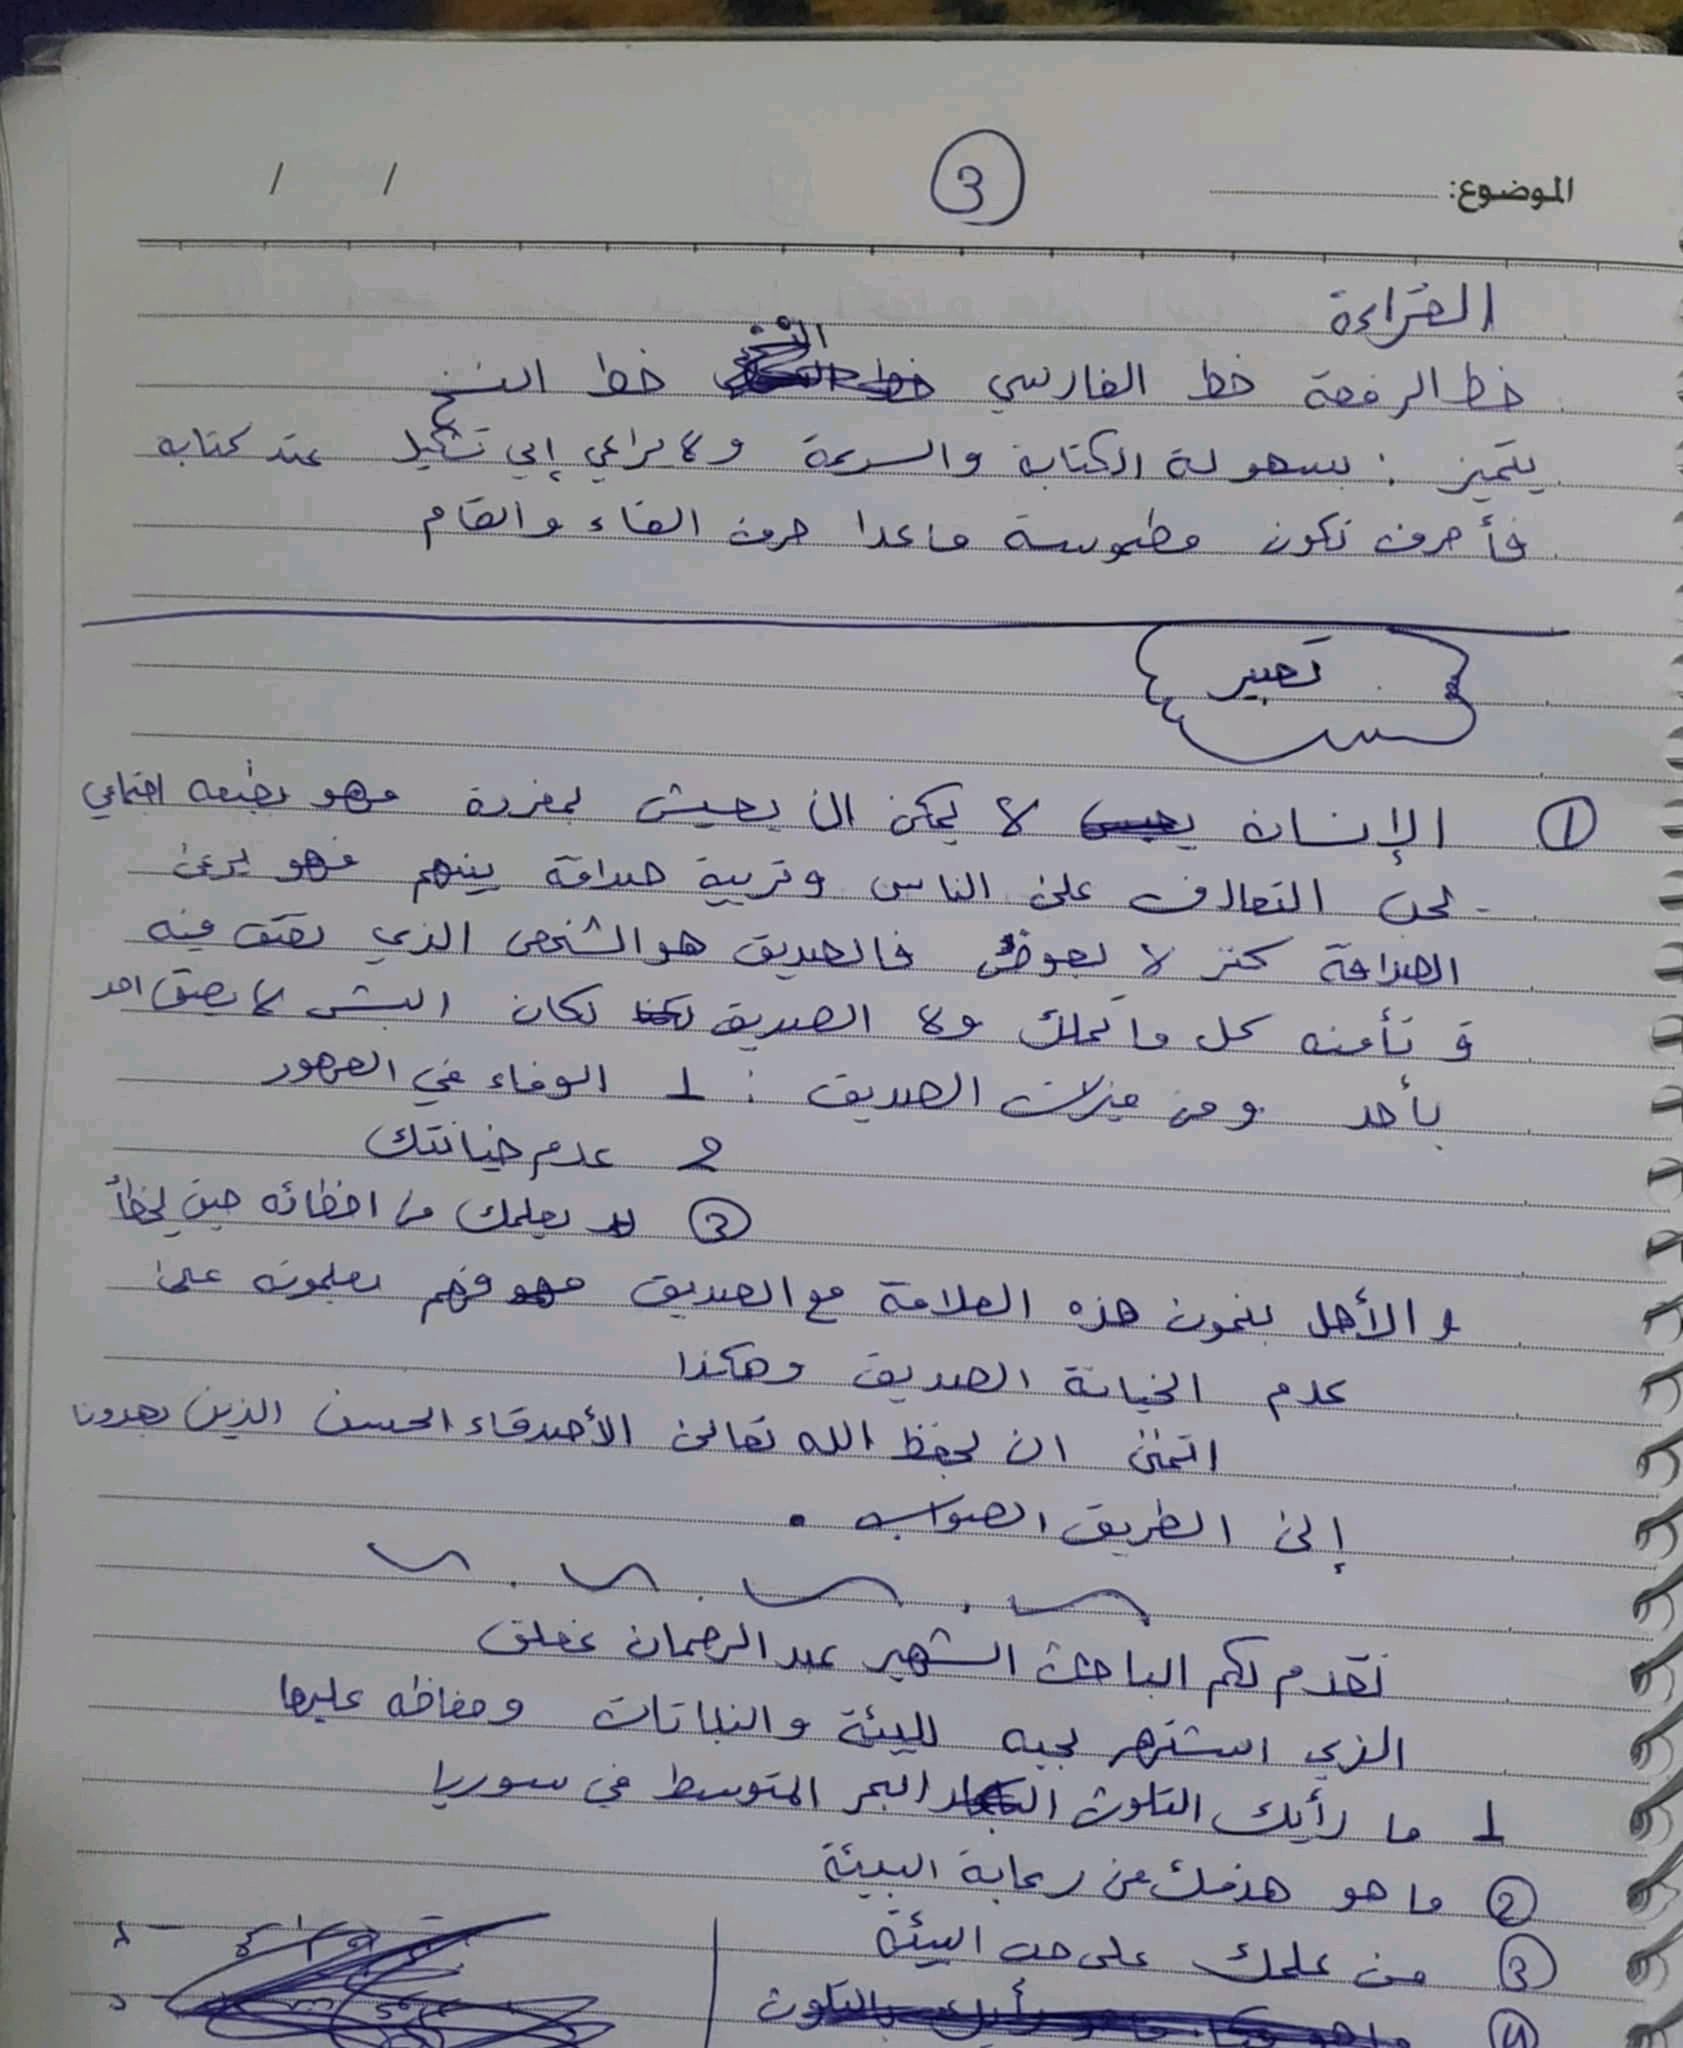 الموضوع:
3
/ /
القراءة
خط الرقعة خط الفارسي خط النسخ
يتميز : بسهولة الكتابة والسرعة ولا يراعي إلى تشكيل عند كتابه
فأحرف تكون مطموسة ماعدا حرف الفاء والقاف
تعبير
① الإنسان لا يمكن ان يعيش بمفردة فهو بطبعه اجتماعي
يحب التعارف على الناس وتربية صداقة بينهم فهو يرعى
الصداقة كنز لا يعوض فالصديق هو الشخص الذي تثق فيه
و تأمنه كل ما تملك ولا الصديق لكان البشر لا يصق احد
بأحد ومن ميزات الصديق : 1 الوفاء في العهود
2 عدم خيانتك
③ يعلمك من اخطائه حين يخطأ
والأهل ينمون هذه العلاقة مع الصديق فهم يعلمونه على
عدم الخيانة الصديق وهكذا
اتمنى ان يحفظ الله تعالى الأصدقاء الحسن الذين يهدونا
إلى الطريق الصواب .
نقدم لكم الباحث الشهير عبد الرحمان عفلق
الذي اشتهر بحبه للبيئة والنباتات ومفاظه عليها
1 ما رأيك التلوث البحر المتوسط في سوريا
② ما هو هدفك من رعاية البيئة
③ من علمك على حب البيئة
④